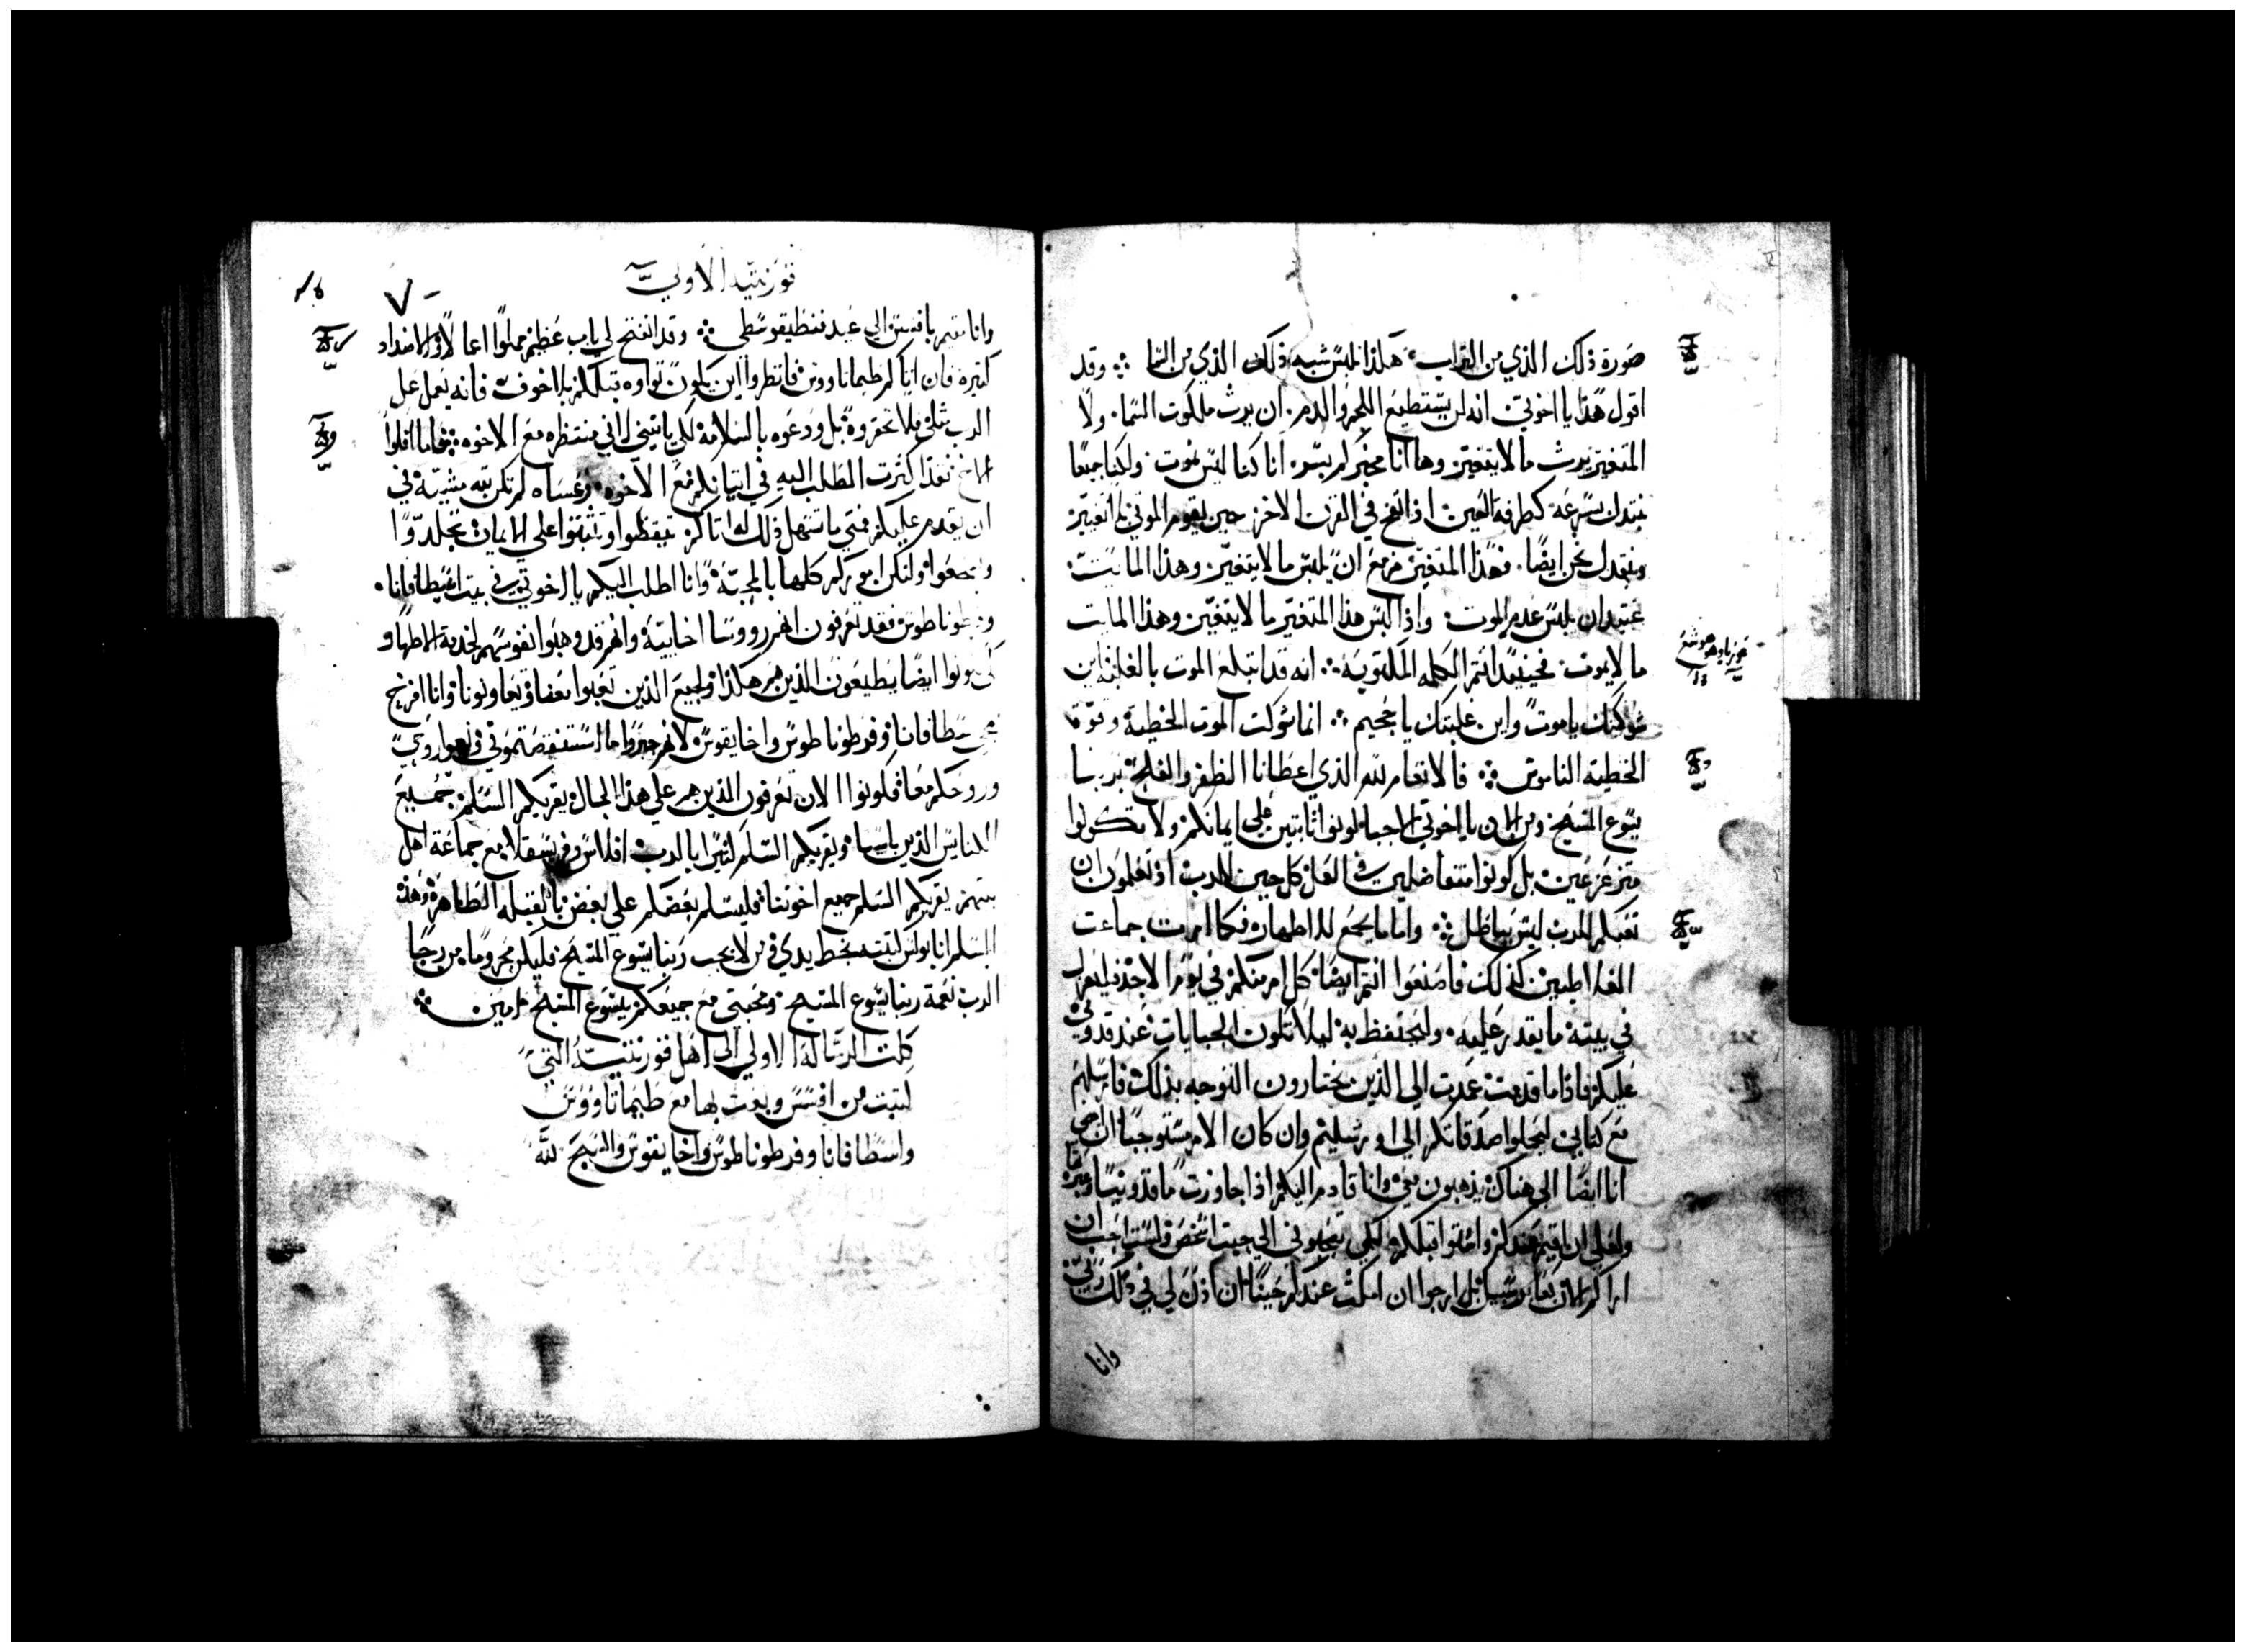 صورة ذلك الذي من التراب هكذا نلبس شبه ذلك الذي من السما وقد
اقول هذا يا اخوتي انه لن يستطيع اللحم والدم ان يرث ملكوت السما ولا
المتغير يرث ما لا يتغير وها انا مخبركم بسر انا كنا ليس نموت ولكنا جميعا
نبتدل بسرعة كطرفة العين اذا نفخ في القرن الاخر حين يقوم الموتي بلا تغير
ونبتدل نحن ايضا فهذا المتغير مزمع ان يلبس ما لا يتغير وهذا المايت
عتيد ان يلبس عدم الموت واذا لبس هذا المتغير ما لا يتغير وهذا المايت
ما لا يموت فحينيذ تتم الكلمه المكتوبة انه قد ابتلع الموت بالغلبة اين
شوكتك يا موت واين غلبتك يا جحيم انما شوكت الموت الخطية وقوة
الخطيه الناموس فالانعام لله الذي اعطانا الظفر والفلج بربنا
يسوع المسيح ومن الان يا اخوتي الاحبا كونوا ثابتين علي ايمانكم ولا تكونوا
متزعزعين بل كونوا متفاضلين في العمل كل حين للرب اذ تعلمون ان
تعبكم للرب ليس بباطل واما ما يجمع للاطهار فكما امرت جماعت
الغلاطيين كذلك فاصنعوا انتم ايضا كل امر منكم في يوم الاحد فليعزل
في بيته ما يقدر عليه وليحتفظ به ليلا تكون الجبايات عند قدومي
عليكم فاذا ما قدمت عمدت الي الذين تختارون التوجه بذلك فارسلهم
مع كتابي ليحملوا صدقاتكم الي اورشليم وان كان الامر مستوجبا ان امضي
انا ايضا الي هناك يذهبون معي وانا قادم اليكم اذا جاوزت ماقدونيا
ولعلي ان اقيم عندكم واشتوا قبلكم لكي تصحبوني الي حيث اشخص ولست احب ان
اراكم الان كعابر سبيل بل ارجوا ان امكث عندكم حينا ان اذن لي في ذلك ربي
وانا
هوشع
فورنثيه الاولي
وانا مقيم بافسس الي عيد فنطيقوسطي وقد انفتح لي باب عظيم مملوا اعمالا والاضداد
كثيرة فان اتاكم طيماثاووس فانظروا ان يكون ثواوه قبلكم بلا خوف فانه يعمل عمل
الرب مثلي فلا تحقروه بل ودعوه بالسلامة لكي ياتيني لاني منتظره مع الاخوه فاما افلوا
الاخ فقد اكثرت الطلب اليه في اتيانكم مع الاخوه وعساه لم تكن به مشية في
ان يقدم عليكم فمتي ما تسهل ذلك اتاكم تيقظوا وتثبتوا علي الايمان تجلدوا
وتشجعوا ولتكن اموركم كلها بالمحبة وانا اطلب اليكم يا اخوتي في بيت اسطافانا
وفرطوناطوس فقد تعرفون انهم رووسا اخاييه وانهم قد وهبوا نفوسهم لخدمة الاطهار
كي تكونوا ايضا تطيعون الذين هم هكذا ولجميع الذين تعبوا معنا ويعاونونا وانا افرح
بمجي اسطافانا وفرطوناطوس واخايقوس لانهم جبروا ما استنقصتموني واراحوا روحي
وروحكم معا فكونوا الان تعرفون الذين هم علي هذا الحال يقريكم السلم جميع
الكنايس الذين باسيا ويقريكم السلم كثيرا بالرب اقلاس وفريسقلا مع جماعة اهل
بيتهم يقريكم السلم جميع اخوتنا فليسلم بعضكم علي بعض بالقبله الطاهرة وهذه
السلم انا بولس كتبته بخط يدي فمن لا يحب ربنا يسوع المسيح فليكن محروما من رجا
الرب نعمة ربنا يسوع المسيح ومحبتي مع جميعكم بيسوع المسيح امين
كملت الرسالة الاولي الي اهل فورنثيه التي
كتبت من افسس وبعث بها مع طيماثاووس
واسطافانا وفرطوناطوس واخايقوس والسبح لله